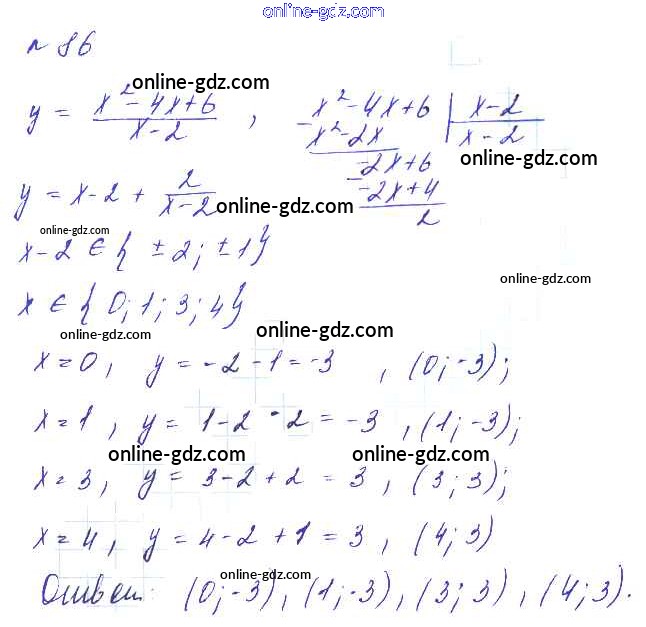 online-gdz.com
№ 86
online-gdz.com
y = x² - 4x + 6 / x - 2 , x² - 4x + 6 | x - 2
x² - 2x x - 2
-2x + 6 online-gdz.com
-2x + 4
y = x - 2 + 2 / x - 2 online-gdz.com 2
online-gdz.com
x - 2 ∈ { ± 2; ± 1 }
online-gdz.com
x ∈ { 0; 1; 3; 4 }
online-gdz.com online-gdz.com
x = 0, y = -2 - 1 = -3 , (0; -3);
x = 1, y = 1 - 2 - 2 = -3 , (1; -3);
online-gdz.com online-gdz.com
x = 3, y = 3 - 2 + 2 = 3 , (3; 3);
online-gdz.com
x = 4, y = 4 - 2 + 1 = 3 , (4; 3)
online-gdz.com
Ответ: (0; -3), (1; -3), (3; 3), (4; 3).